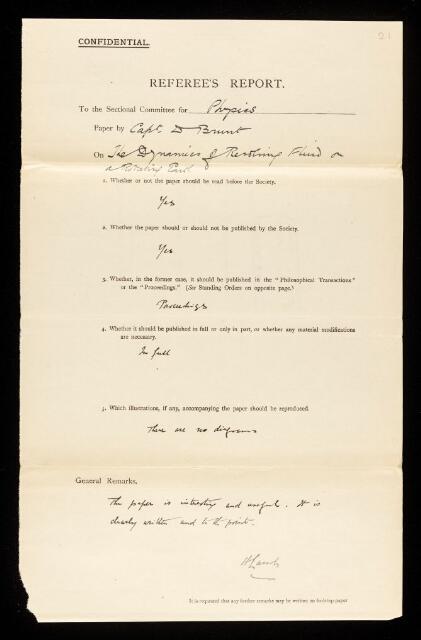 21
CONFIDENTIAL.
REFEREE'S REPORT.
To the Sectional Committee for Physics
Paper by Capt. D Brunt
On The Dynamics of Revolving Fluid on
a Rotating Earth
1. Whether or not the paper should be read before the Society.
Yes
2. Whether the paper should or should not be published by the Society.
Yes
3. Whether, in the former case, it should be published in the "Philosophical Transactions"
or the "Proceedings." (See Standing Orders on opposite page.)
Proceedings
4. Whether it should be published in full or only in part, or whether any material modifications
are necessary.
In full
5. Which illustrations, if any, accompanying the paper should be reproduced.
There are no diagrams
General Remarks.
The paper is interesting and useful. It is
clearly written and to the point.
H Lamb
It is requested that any further remarks may be written on foolscap paper